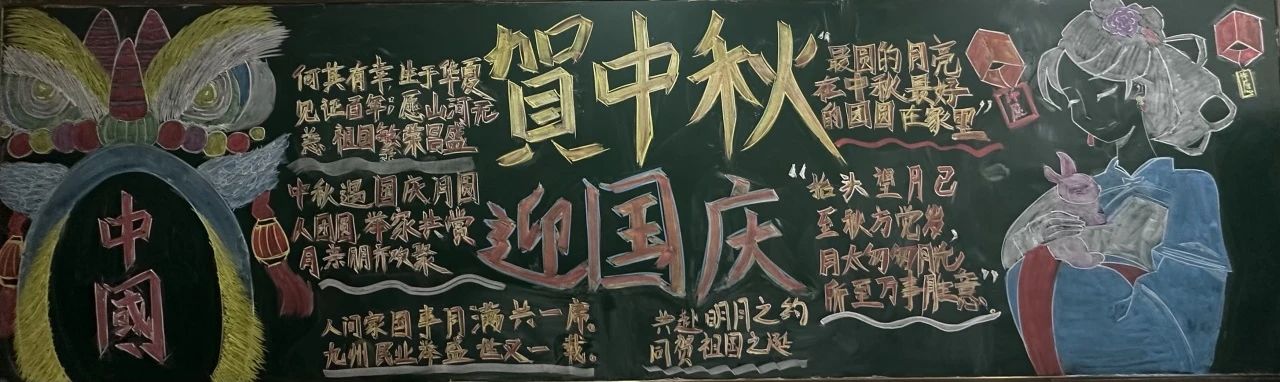 中
國
何其有幸 生于华夏
见证百年；愿山河无
恙 祖国繁荣昌盛
中秋遇国庆月圆
人团圆 举家共赏
月亲朋齐欢聚
人间家国事月满共一席。
九州民业举盛世又一载。
賀中秋
迎国庆
“最圆的月亮
在中秋最好
的团圆在家里”
“抬头望月已
至秋方觉岁
月太匆匆愿
所至万事胜意”
共赴明月之约
同贺祖国之诞